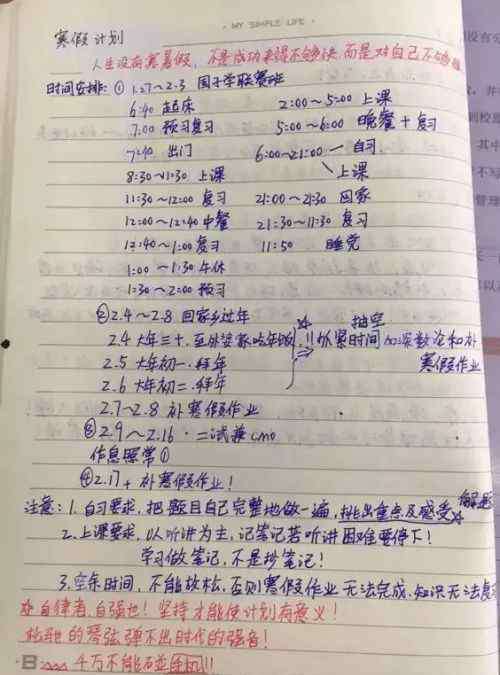 · MY SIMPLE LIFE ·
寒假计划
人生没有寒暑假，不是成功来得不够快，而是对自己不够狠
时间安排：① 1.27~2.3 国子学联赛班
6:40 起床 2:00~5:00 上课
7:00 预习复习 5:00~6:00 晚餐+复习
7:40 出门 6:00~21:00 — 自习
8:30~11:30 上课 上课
11:30~12:00 复习 21:00~21:30 回家
12:00~12:40 中餐 21:30~11:30 复习
12:40~1:00 复习 11:50 睡觉
1:00~1:30 午休
1:30~2:00 预习
②2.4~2.8 回家乡过年
2.4 大年三十.至外婆家吃年饭 !!抓紧时间 抽空 加深数论和补
2.5 大年初一.拜年 寒假作业
2.6 大年初二.拜年
2.7~2.8 补寒假作业
③2.9~2.16 · 二试兼CMO
作息照常①
④2.17+ 补寒假作业！
注意：1.自习要求，把题目自己完整地做一遍，挑出重点及感受 解题
2.上课要求，以听讲为主，记笔记若听讲困难要停下！
学习做笔记，不是抄笔记！
3.空余时间，不能放松，否则寒假作业无法完成，知识无法复习
自律者，自强也！坚持才能使计划有意义！
松弛的琴弦弹不出时代的强音！
千万不能碰手机!!